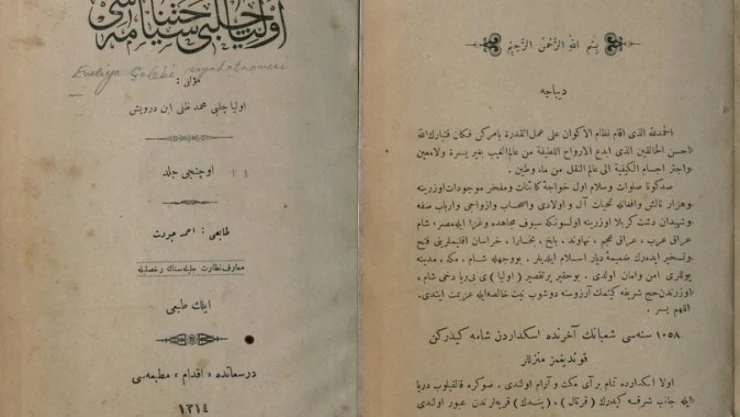 اوليا چلبى سياحتنامه سى
Evliya Çelebi seyahatnamesi
مؤلفى :
اوليا چلبى محمد ظلى ابن درويش
اوچنجى جلد
طابعى : احمد جودت
معارف نظارت جليله سنك رخصتيله
ايلك طبعى
درسعادتده « اقدام » مطبعه سى
١٣١٤
بِسْمِ اللهِ الرَّحْمٰنِ الرَّحِيْمِ
ديباجه
الحمدلله الذى اقام نظام الاكوان على عمل القدرة بامركن فكان فتبارك الله
احسن الخالقين الذى ابدع الارواح اللطيفة من عالم الغيب بغير يسرة ولامعين
واجتر اجسام الكيفية الى عالم النقل من ماء وطين .
صدكونا صلوات وسلام اول خواجهٔ كائنات ومفخر موجودات اوزرينه
وهزار تالش وافغانله تحيات آل و اولادى واصحاب وازواجى وارباب صفه
وشهيدان دشت كربلا اوزرينه اولسونكه سيوف مجاهده وغزا ايله مصر، شام
عراق عرب ، عراق عجم ، نهاوند ، بلخ ، بخارا ، خراسان اقليملرينى فتح
وتسخير ايده رك ضميمهٔ ديار اسلام ايلديلر . بووجهله شام ، مكه ، مدينه
يوللرى امن وامان اولدى . بوحقير پرتقصير ( اوليا ) ى بى ريا دخى شام ،
اوزرندن حج شريفه كيتمك آرزوسنه دوشوب نيت خالصه ايله عزيمت ايتدى .
اللهم يسر .
١٠٥٨ سنه سى شعبانك آخرنده اسكداردن شامه كيدركن
قونديغمز منزللر
اولا اسكدارده تمام برآى مكث و آرام اولندى ، صوكره قاليقلوب دريا
ايله جانب شرقه كيدرك ( قرتال ) ، ( پندك ) قريه لرندن عبور اولندى